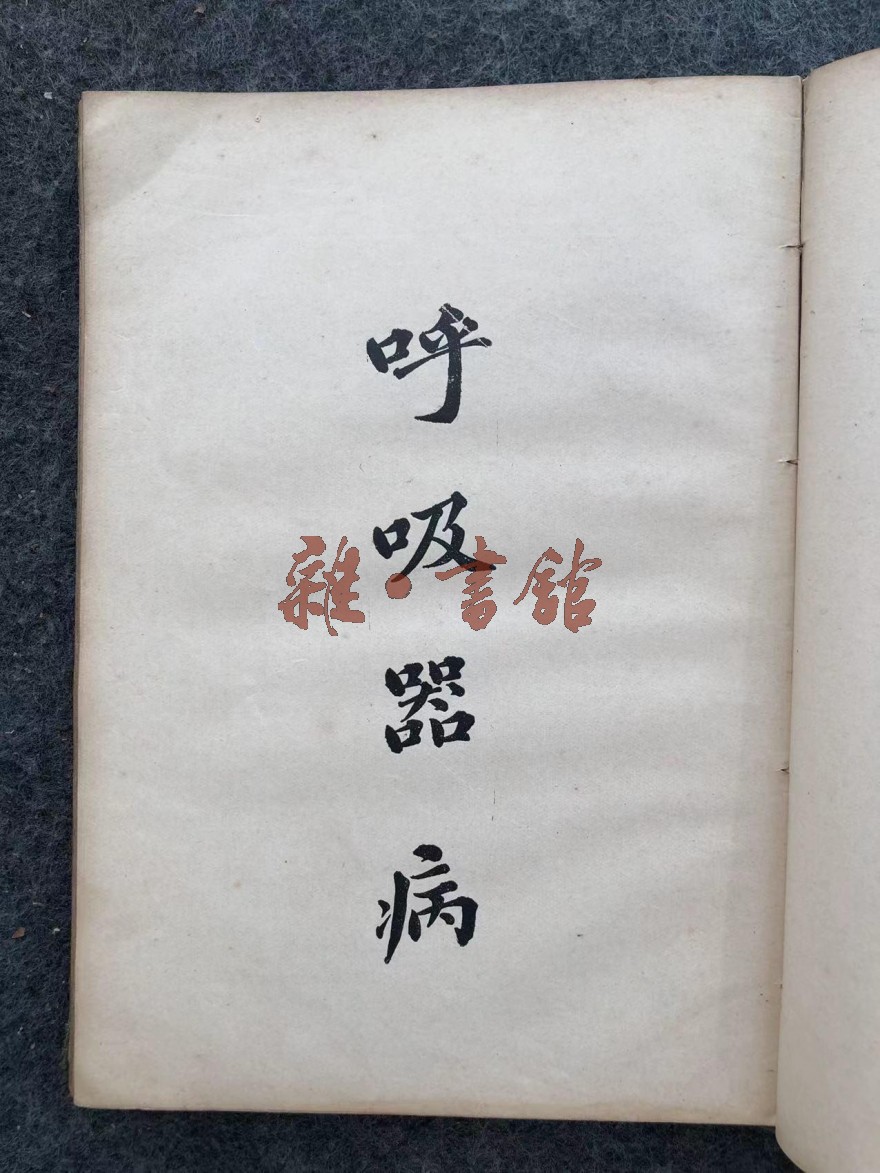 呼吸器病
雜·書館